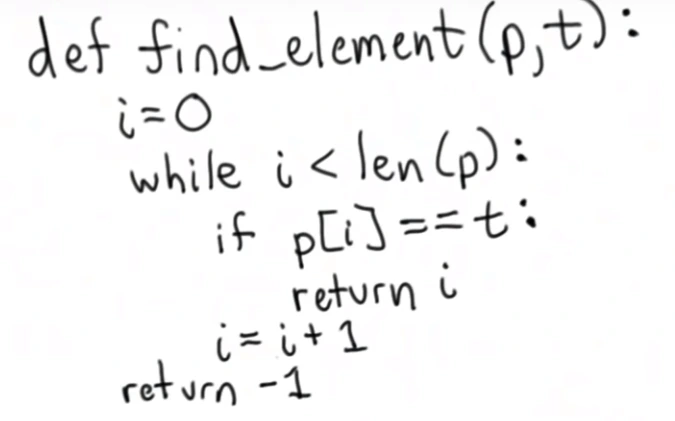 def find_element(p,t):
i=0
while i < len(p):
if p[i]==t:
return i
i=i+1
return -1